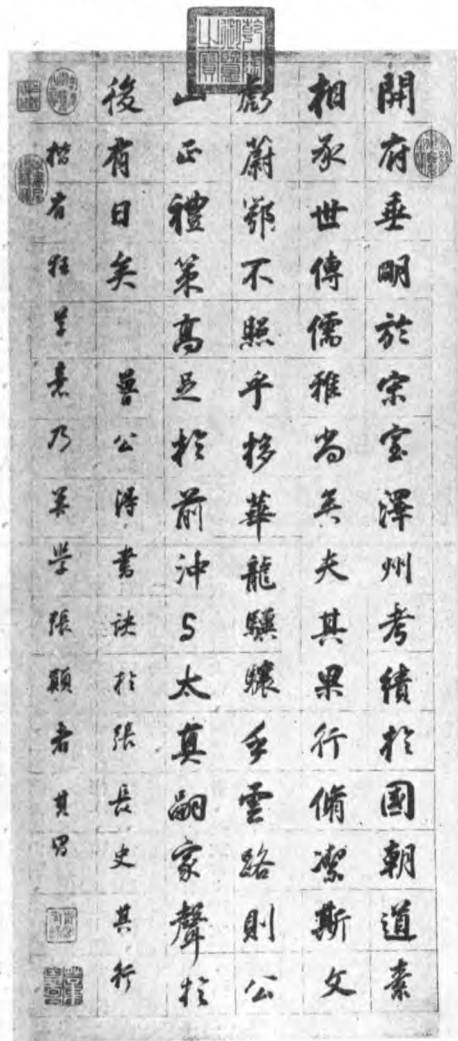 乾隆御覽之寶
開府垂明於宗室澤州考績於國朝道素
相承世傳儒雅尚矣夫其果行脩潔斯文
彪蔚鄂不照乎栘華龍驥驤乎雲路則公
山正禮策高足於前沖与太真嗣家聲於
後有日矣 魯公得書訣於張長史其行
楷有狂草意乃善學張顛者其昌